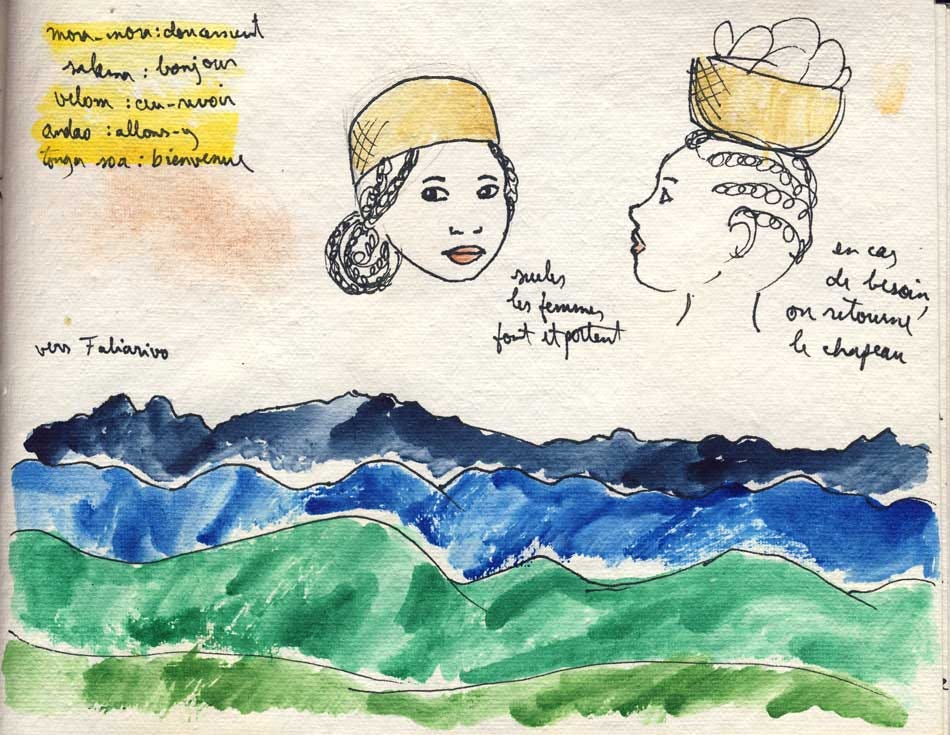 mora-mora : doucement
salama : bonjour
velom : au-revoir
andao : allons-y
tonga soa : bienvenue
seules
les femmes
font et portent
en cas
de besoin,
on retourne
le chapeau
vers Faliarivo